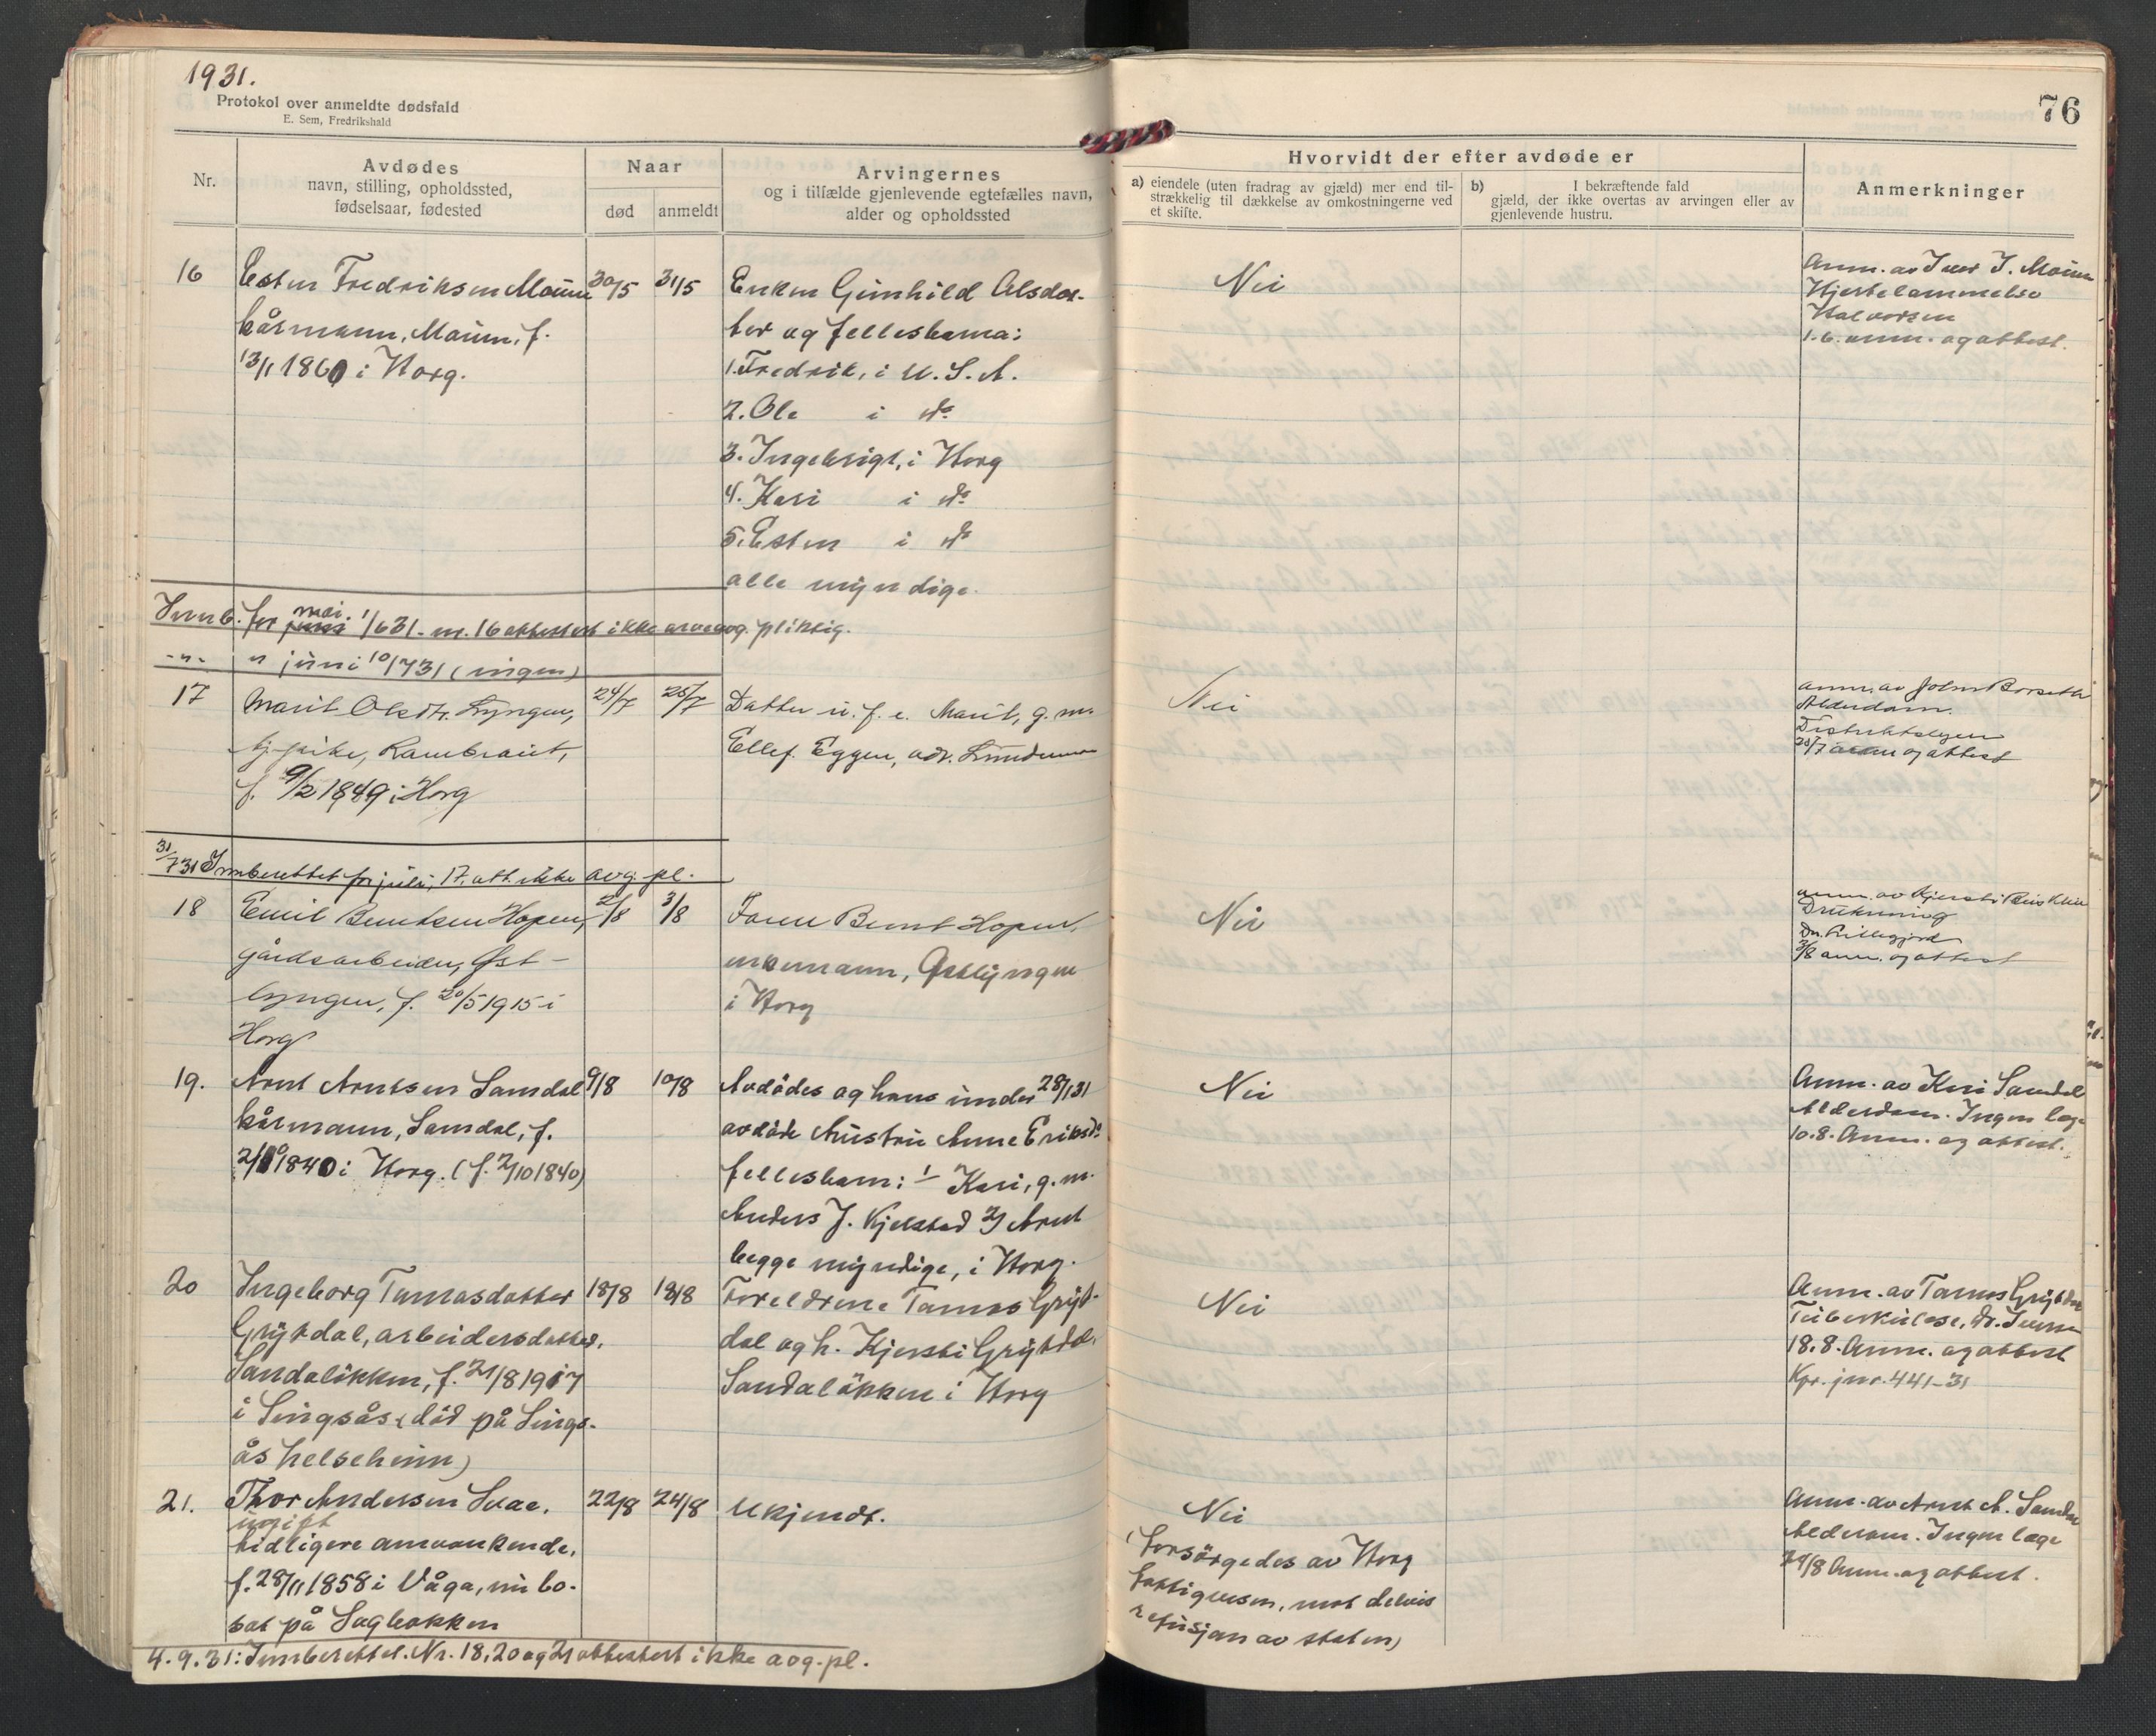 1931.
Protokol over anmeldte dødsfald
E. Sem, Fredrikshald
76
Nr.
Avdødes
navn, stilling, opholdssted,
fødselsaar, fødested
Naar
død
anmeldt
Arvingernes
og i tilfælde gjenlevende egtefælles navn,
alder og opholdssted
Hvorvidt der efter avdøde er
a) eiendele (uten fradrag av gjæld) mer end til-
strækkelig til dækkelse av omkostningerne ved
et skifte.
b) I bekræftende fald
gjæld, der ikke overtas av arvingen eller av
gjenlevende hustru.
Anmerkninger
16
Esten Fredriksen Moum
kårmann, Moum, f.
13/11 1860 i Horg.
30/5
31/5
Enken Gunhild Olsdat-
ter og fellesbarna:
1. Fredrik, i U.S.A.
2. Ole i do
3. Ingebrigt, i Horg
4. Kari i do
5. Esten i do
alle myndige.
Nei
Anm. av Iver I. Moum
Hjertelammelse
Halvorsen
1.6. anm. og attest.
Innb. for juni mai 1/6 31 - nr. 16 attestert ikke arveavg. pliktig.
-"- " juni 10/7 31 (ingen)
17
Marit Olsdtr. Lyngen,
f. 9/2 1849 i Horg
24/7
25/7
Datter u. f. e. Marit, g. m.
Ellef Eggen, adr. Lundemo
Nei
anm. av John Borseth
Alderdom.
Distriktslegen
25/7 anm og attest
31/7 31 Innberettet for juli, 17. att. ikke avg. pl.
18
Emil Berntsen Hopen,
gårdsarbeider, Øst-
lyngen, f. 20/5 1915 i
Horg
2/8
3/8
Faren Bernt Hopen,
enkemann, Østlyngen
i Horg
Nei
anm. av Kjersti
Drukning
Dr. Lillegjord
3/8 anm. og attest
19.
Arnt Arntsen Samdal
kårmann, Samdal, f.
2/10 1840 i Horg. (f. 2/10 1840)
9/8
10/8
Avdødes og hans under 28/1 31
avdøde hustru Anne Eriksdr
fellesbarn: 1/ Kari, g. m.
Anders J. Kjelstad 2/ Arnt
begge myndige, i Horg.
Nei
Anm. av Kari Samdal
Alderdom. Ingen læge
10.8. Anm. og attest.
20
Ingeborg Tomasdatter
Grytdal, arbeidersdatter,
Sandaløkken, f. 21/8 1917
i Singsås (død på Sings-
ås helseheim)
18/8
18/8
Foreldrene Tomas Gryt-
dal og h. Kjersti Grytdal,
Sandaløkken i Horg
Nei
Anm. av Tomas Grytdal
Tuberkulose, dr. Iversen
18.8. Anm. og attest
Kpr. jnr. 441-31
21.
Thor Andersen Svae,
ugift
tidligere omvankende,
f. 28/11 1858 i Våga, nu bo-
sat på Sagbakken
22/8
24/8
Ukjendt.
Nei
(forsørgedes av Horg
fattigvesen, mot delvis
refusjon av staten)
Anm. av Arnt A. Samdal
Alderdom. Ingen læge
24/8 Anm. og attest.
4.9.31: Innberettet. Nr. 18, 20 og 21 attestert ikke avg.pl.